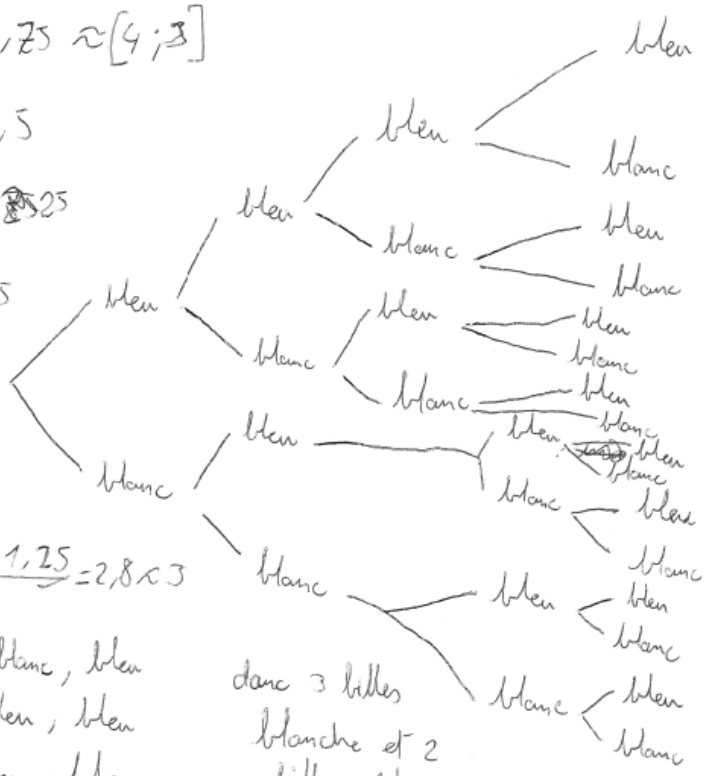 ,75 ≈ [4 ; 3]
,5
525
5
bleu
blanc
bleu
blanc
bleu
blanc
bleu
blanc
bleu
blanc
bleu
blanc
bleu
blanc
bleu
blanc
bleu
blanc
bleu
blanc
bleu
blanc
bleu
blanc
bleu
blanc
bleu
blanc
bleu
blanc
1,25 = 2,8 < 3
blanc, bleu
leu, bleu
donc 3 billes
blanche et 2